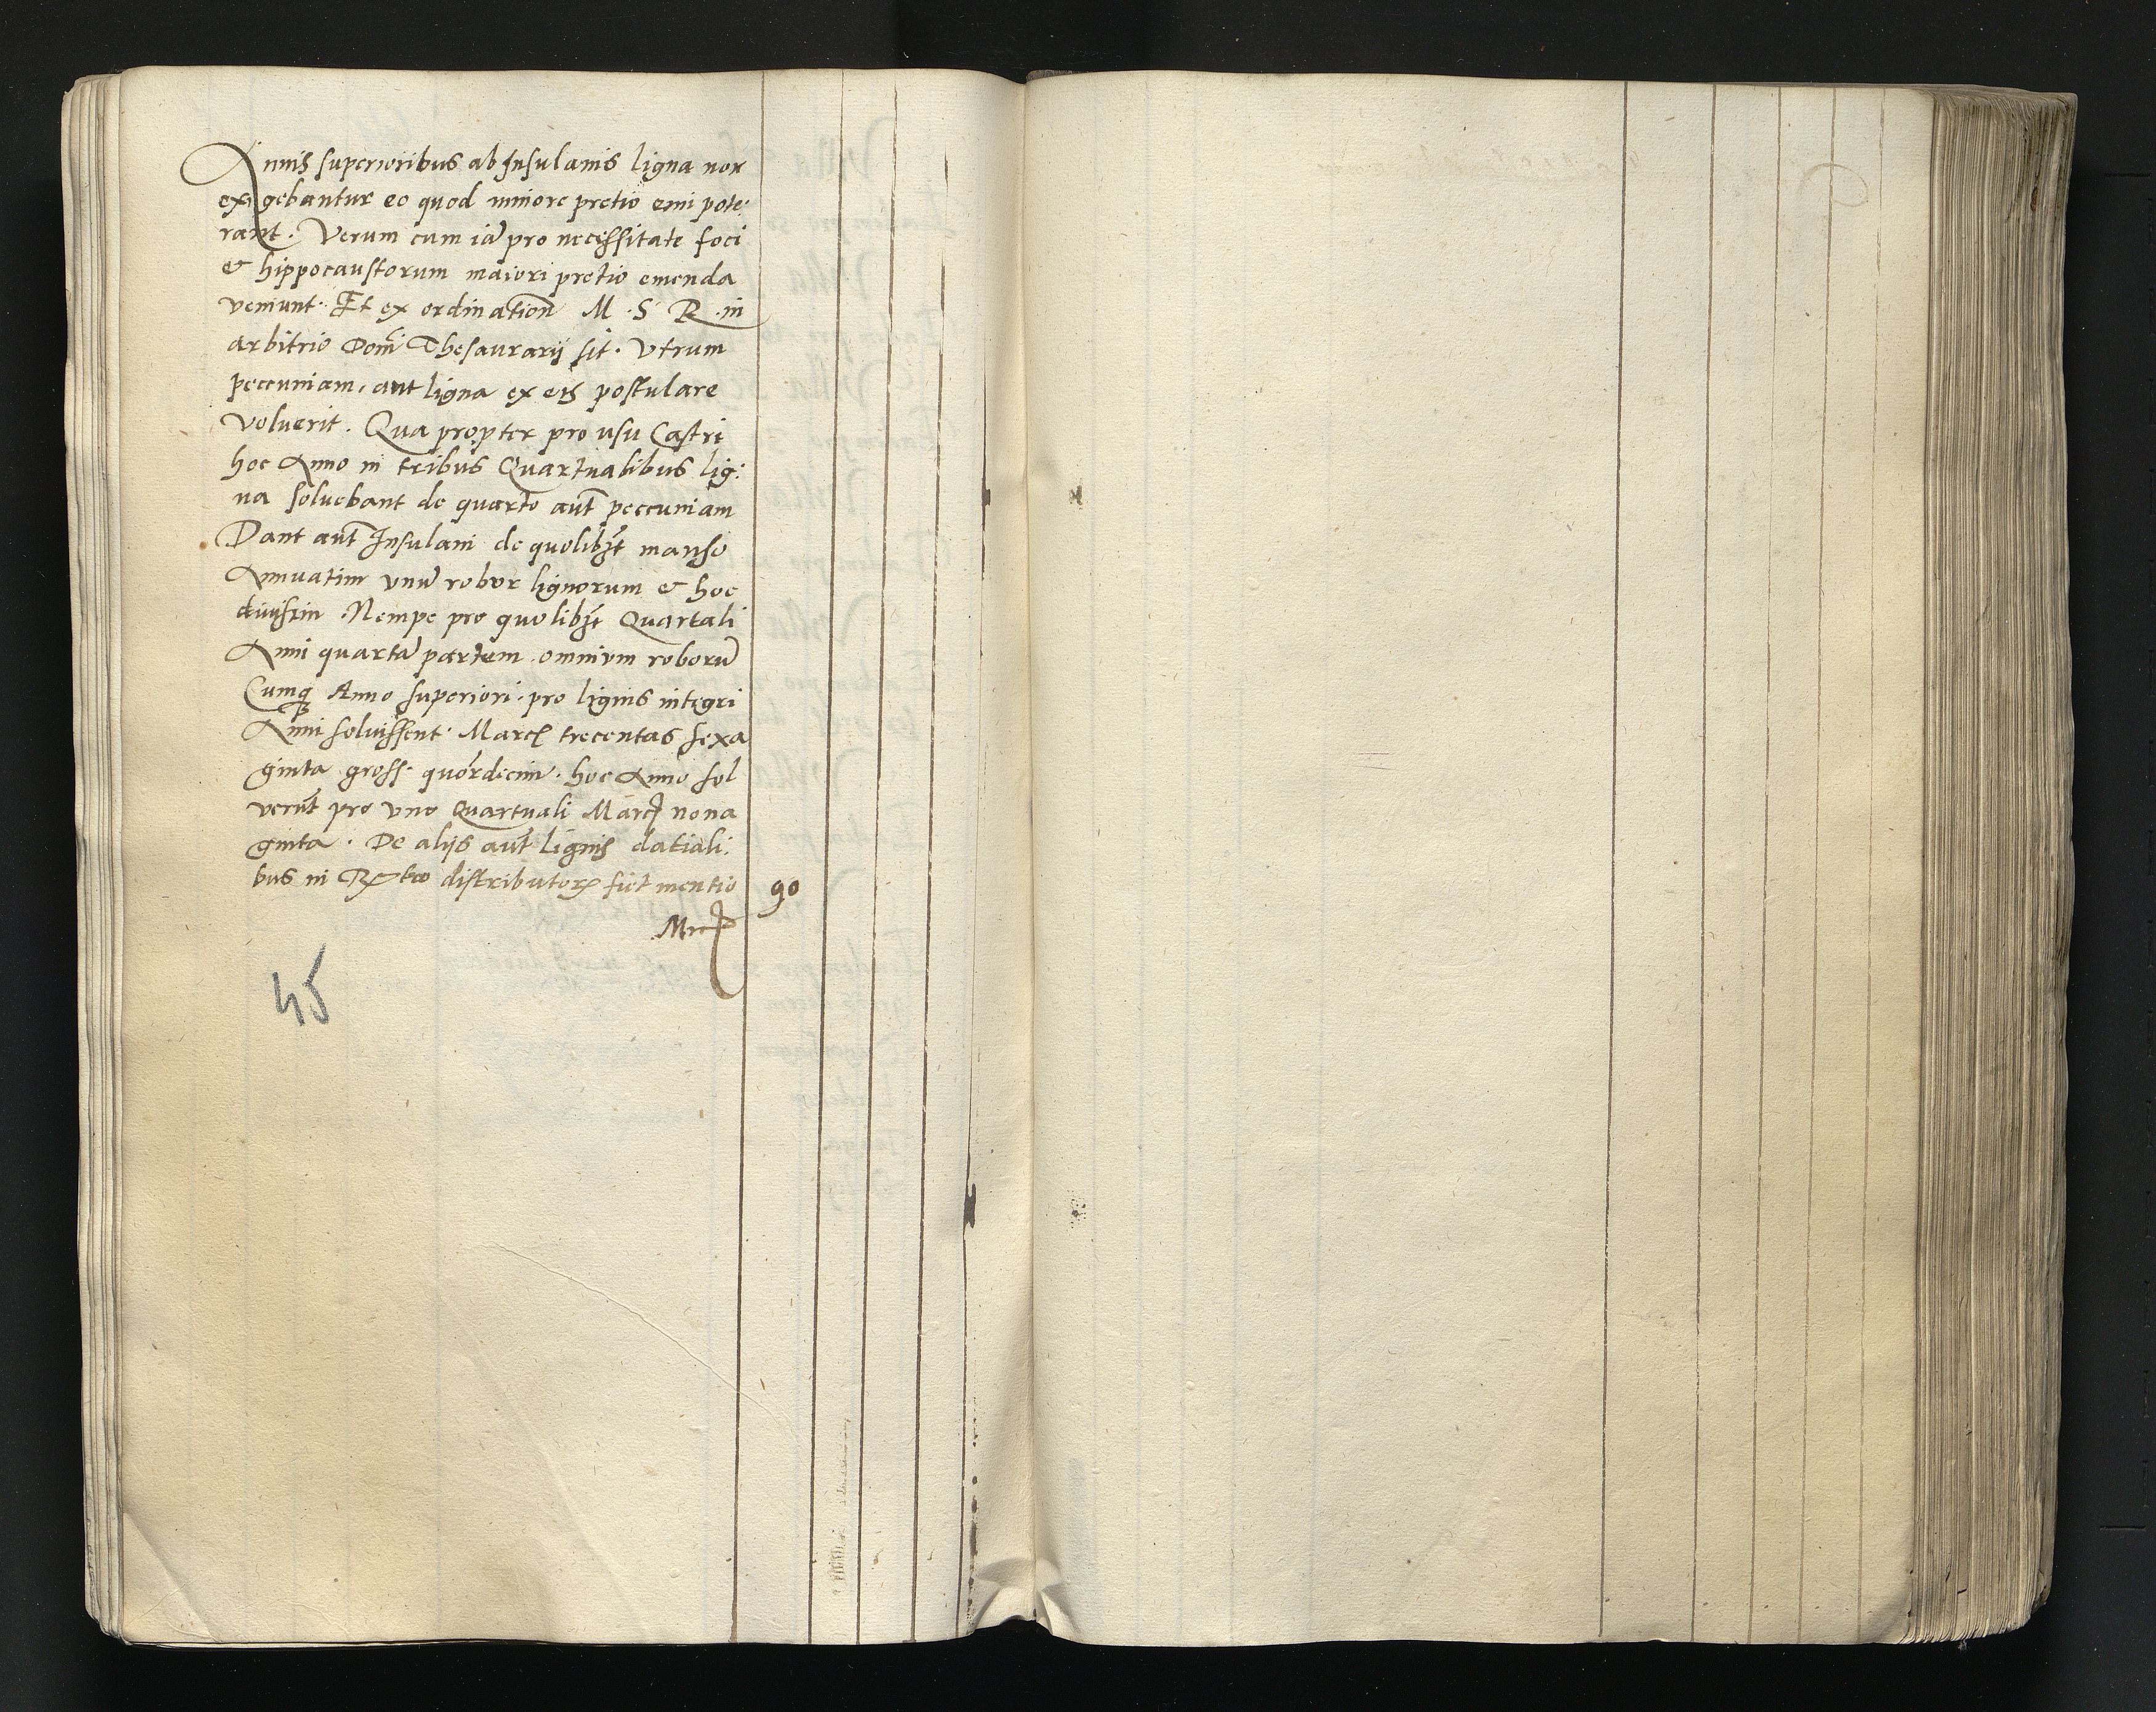 Annis superioribus ab Insulanis ligna non
exigebantur eo quod minore pretio emi pote:
rant. Verum cum iā pro necessitate foci
& hippocaustorum maiori pretio emenda
veniunt. Et ex ordination̄ M. S. R. in
arbitrio Domī Thesaurarij sit. Vtrum
peccuniam, aut ligna ex eis postulare
voluerit. Qua propter pro usu Castri
hoc Anno in tribus Quartualibus lig:
na soluebant de quarto aūt peccuniam
Dant aūt Insulani de quolibȝt manso
Annuatim unū robor lignorum & hoc
diuisim. Nempe pro quolibȝt Quartali
Anni quartā partem omnium roborū
Cumq̄ Anno superiori pro lignis integri
Anni soluissent. Marcꝭ trecentas sexa
ginta gross. quordecim. hoc Anno sol
verūt pro uno Quartuali Marcꝭ nona
ginta. De alijs aūt lignis datiali:
bus in Rꝭtro distributorꝭ fiet mentio 90
Mrcꝭ
45